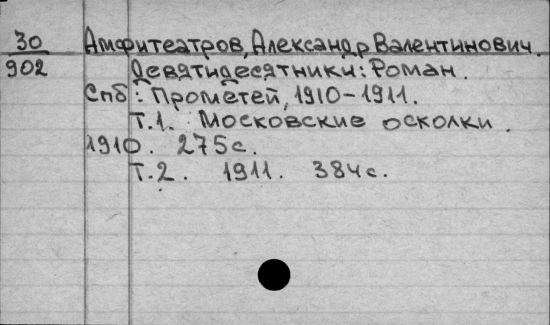 30 Амфитеатров, Александр Валентинович.
902 Девятидесятники: Роман.
Спб: Прометей, 1910-1911.
Т.1. Московские осколки.
1910. 275с.
Т.2. 1911. 384с.